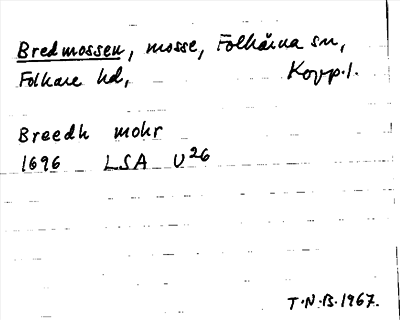 Bredmossen, mosse, Folkärna sn,
Folkare hd, Kopp.l.
Breedh mohr
1696 LSA U26
T.N.B.1967.